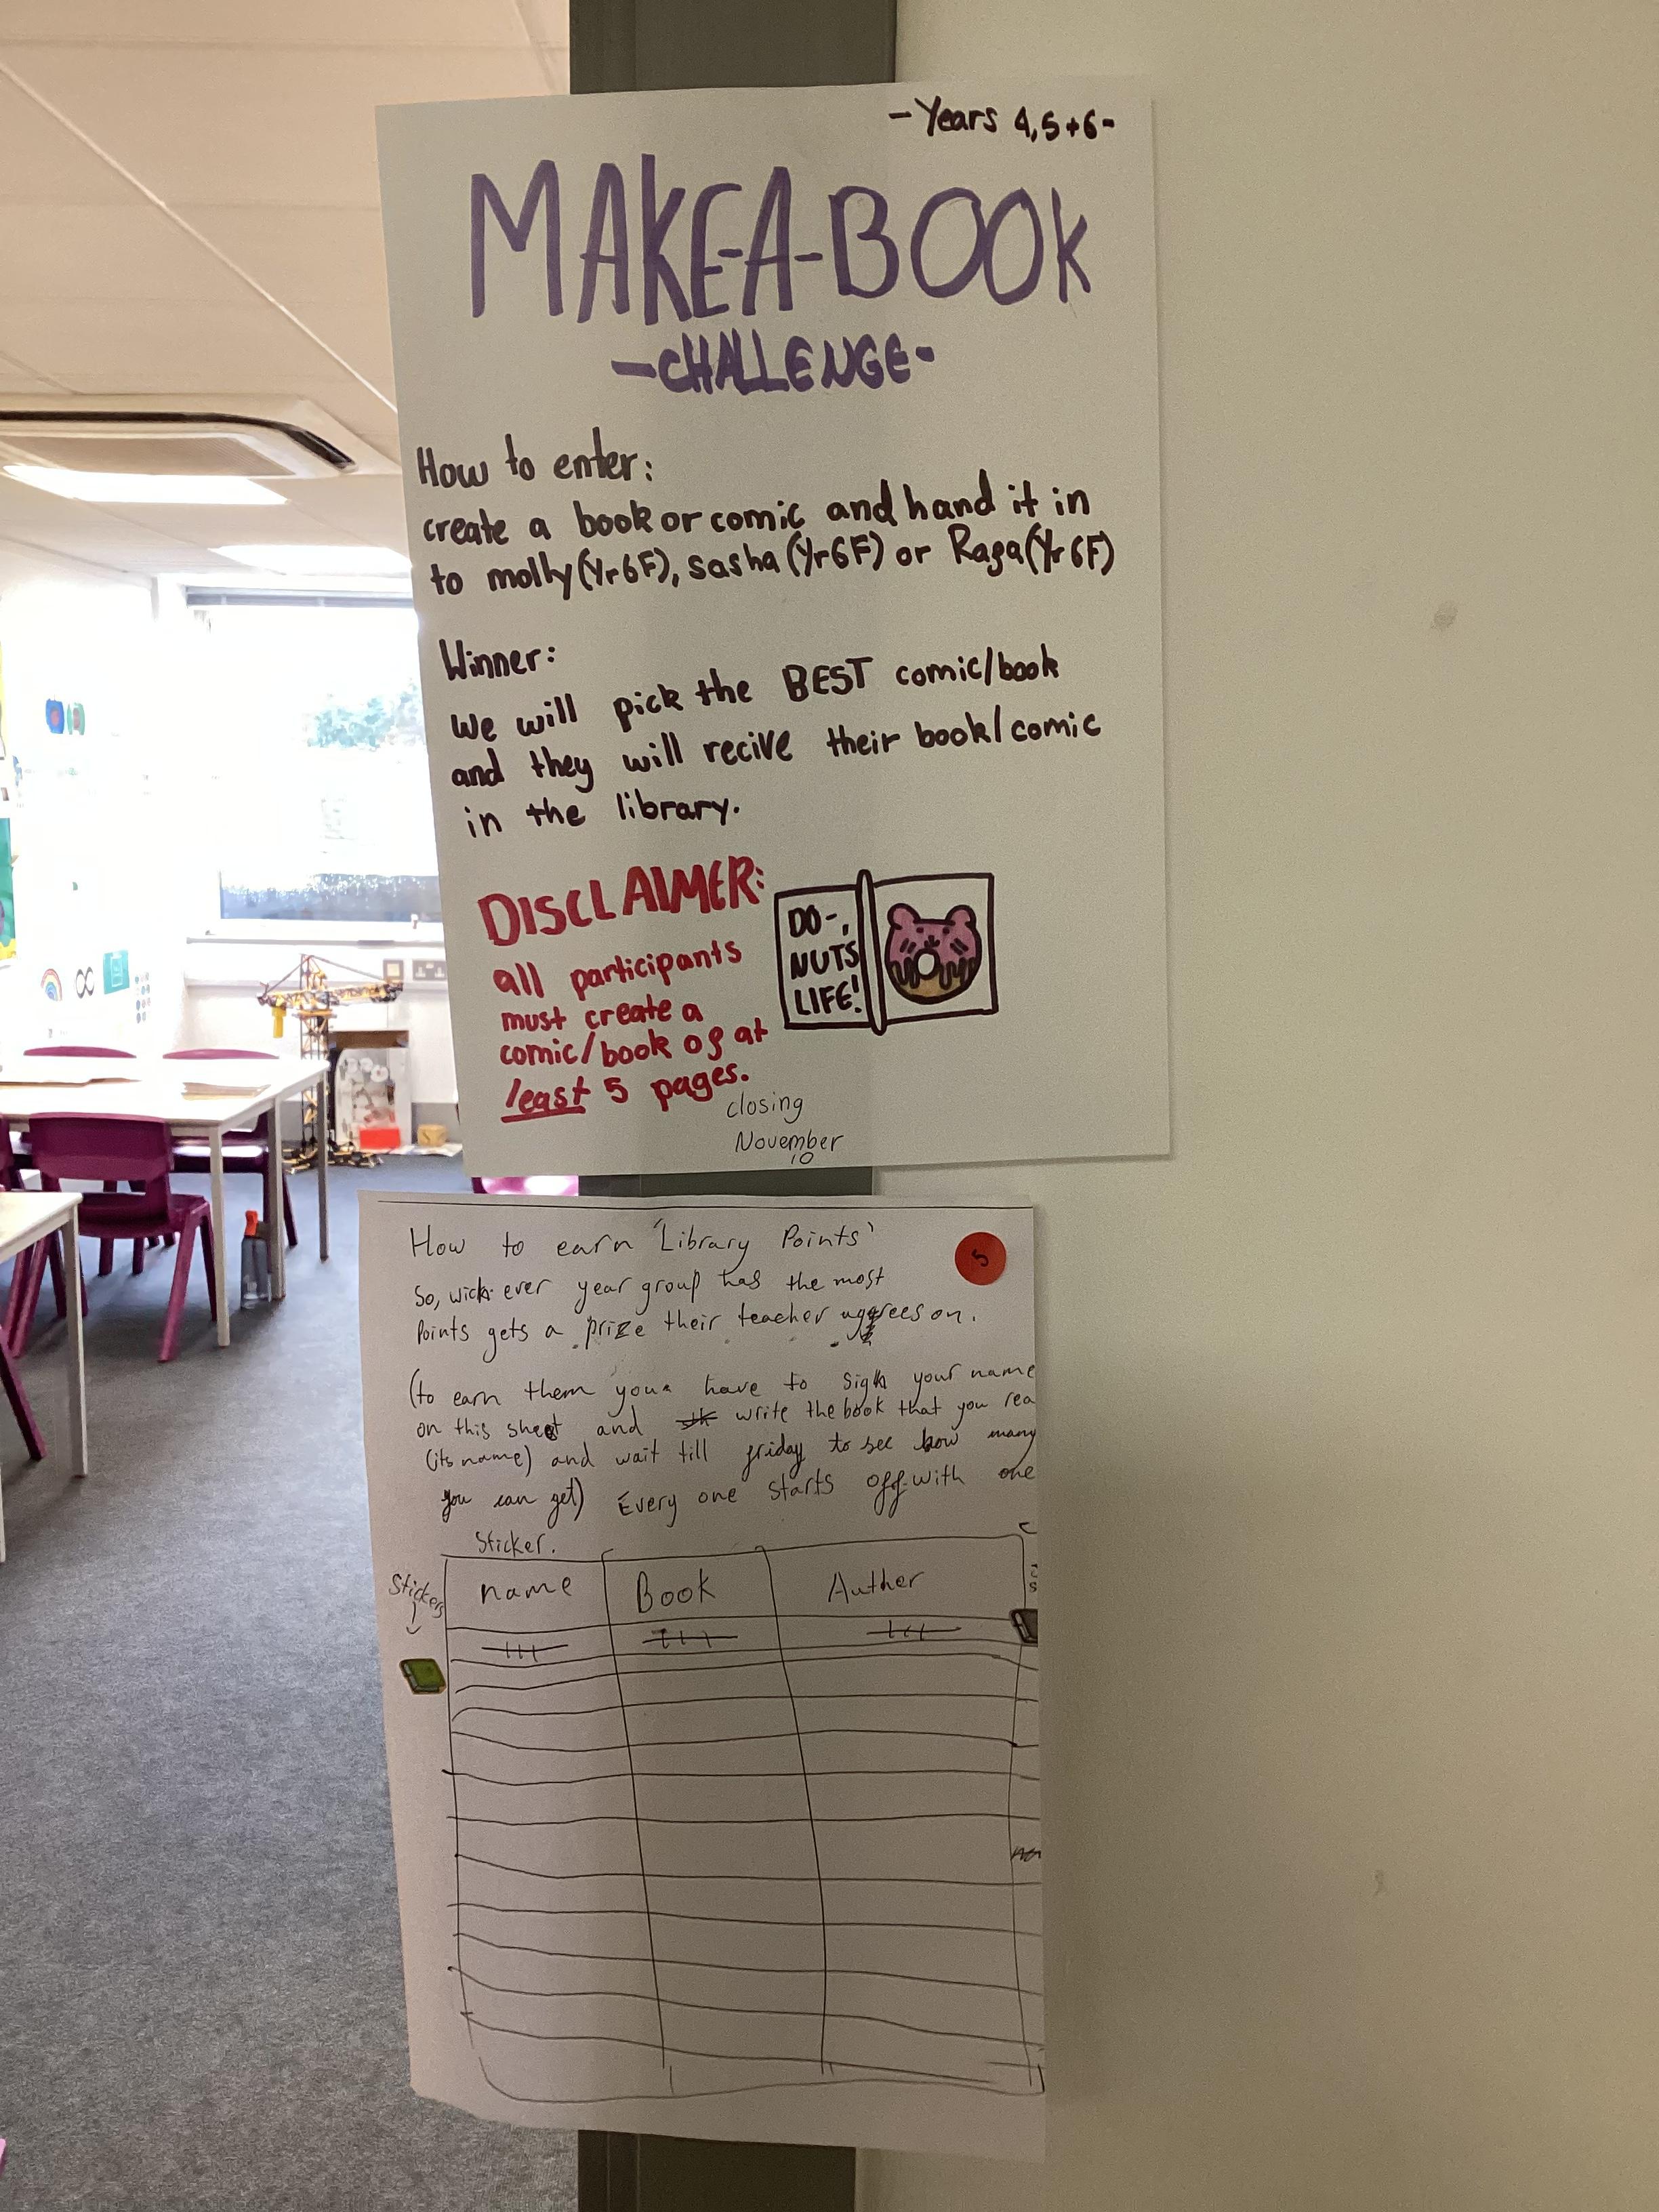 -Years 4,5+6-
MAKE-A-BOOK
-CHALLENGE-
How to enter:
create a book or comic and hand it in
to molly (Yr6F), sasha (Yr6F) or Raga (Yr6F)
Winner:
We will pick the BEST comic/book
and they will recive their book/comic
in the library.
DISCLAIMER:
all participants
must create a
comic/book of at
least 5 pages.
DO-,
NUTS
LIFE!
closing
November
10
How to earn 'Library Points'
5
So, wich-ever year group has the most
Points gets a prize their teacher uggrees on.
(to earn them you have to sign your name
on this sheet and write the book that you rea
(its name) and wait till friday to see how many
you can get) Every one starts off with one
Sticker.
Stickers
name Book Auther